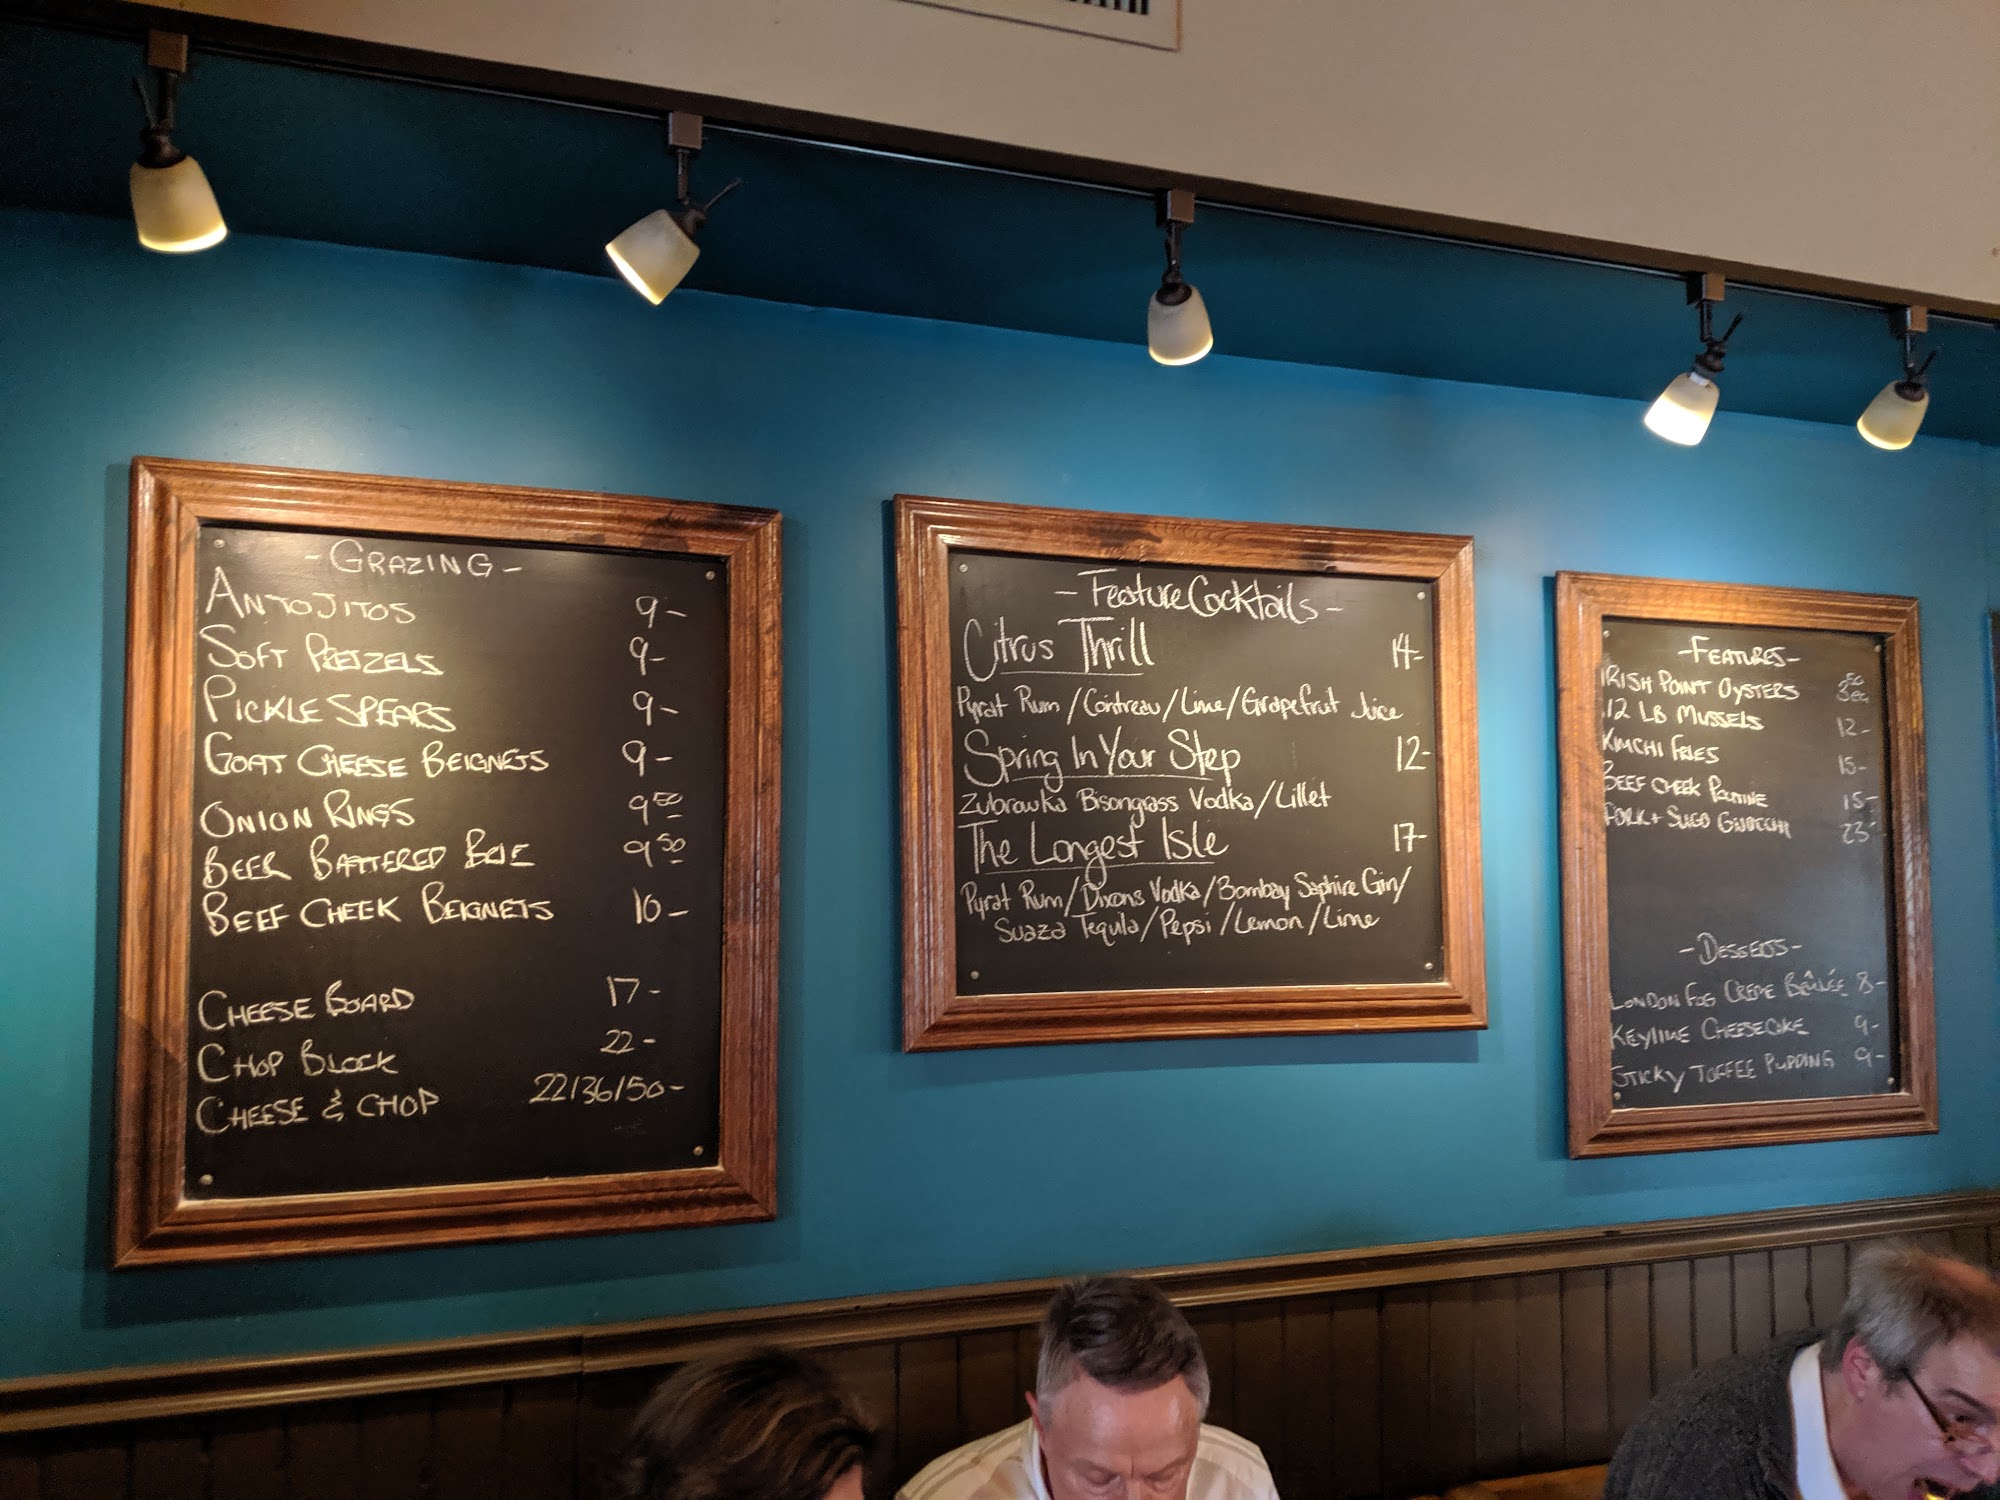 - GRAZING -
ANTOJITOS 9-
SOFT PRETZELS 9-
PICKLE SPEARS 9-
GOAT CHEESE BEIGNETS 9-
ONION RINGS 9 50
BEER BATTERED BRIE 9 50
BEEF CHEEK BEIGNETS 10-
CHEESE BOARD 17-
CHOP BLOCK 22-
CHEESE & CHOP 22/36/50-
- Feature Cocktails -
Citrus Thrill 14-
Pyrat Rum/Cointreau/Lime/Grapefruit Juice
Spring In Your Step 12-
Zubrowka Bisongrass Vodka/Lillet
The Longest Isle 17-
Pyrat Rum/Dixons Vodka/Bombay Saphire Gin/
Suaza Tequila/Pepsi/Lemon/Lime
- FEATURES -
IRISH POINT OYSTERS 3 50 ea
1/2 LB MUSSELS 12-
KIMCHI FRIES 15-
BEEF CHEEK POUTINE 15-
PORK + SUGO GNOCCHI 23-
- DESSERTS -
LONDON FOG CREME BRÛLÉE 8-
KEYLIME CHEESECAKE 9-
STICKY TOFFEE PUDDING 9-